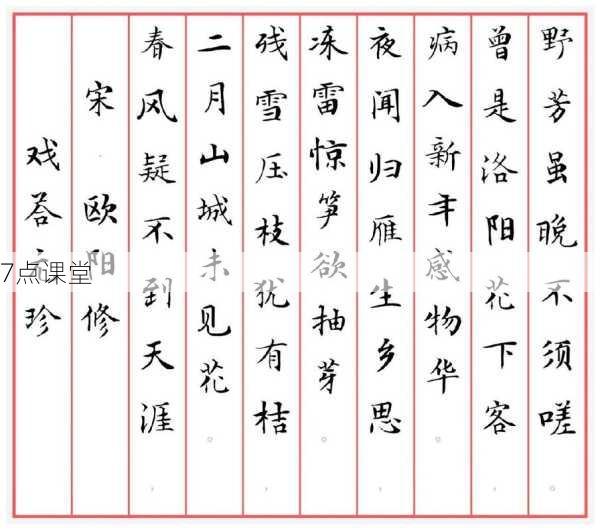 戏荅元珍
宋 欧阳修
春风疑不到天涯，
二月山城未见花。
残雪压枝犹有桔，
冻雷惊笋欲抽芽。
夜闻归雁生乡思，
病入新年感物华。
曾是洛阳花下客，
野芳虽晚不须嗟。
7点课堂